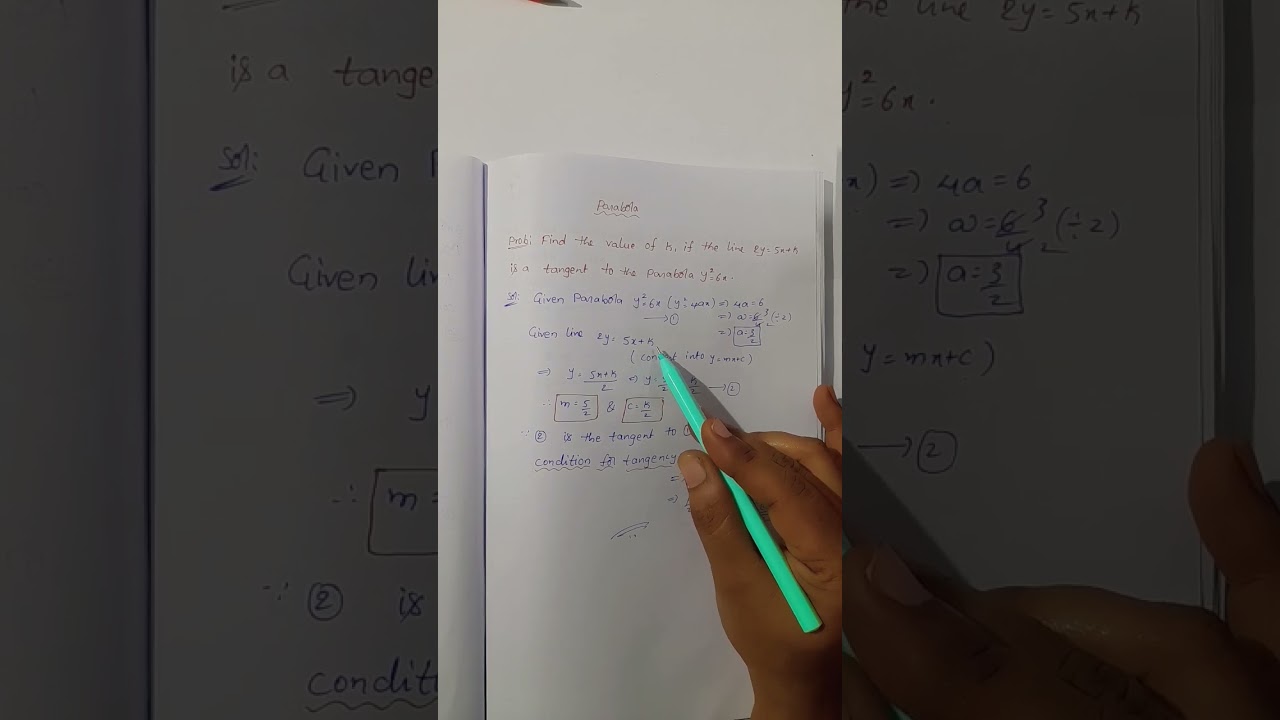 Parabola
Prob: Find the value of k, if the line 2y = 5x+k
is a tangent to the Parabola y²=6x.
Sol: Given Parabola y²=6x (y²=4ax) => 4a=6
—>① => a=6/4 3/2 (÷2)
=> a=3/2
Given line 2y= 5x+k
( into y=mx+c)
=> y= 5x+k/2 => y= k/2 —>②
∴ m=5/2 & c=k/2
∵ ② is the tangent to
condition for tangency
=
=>